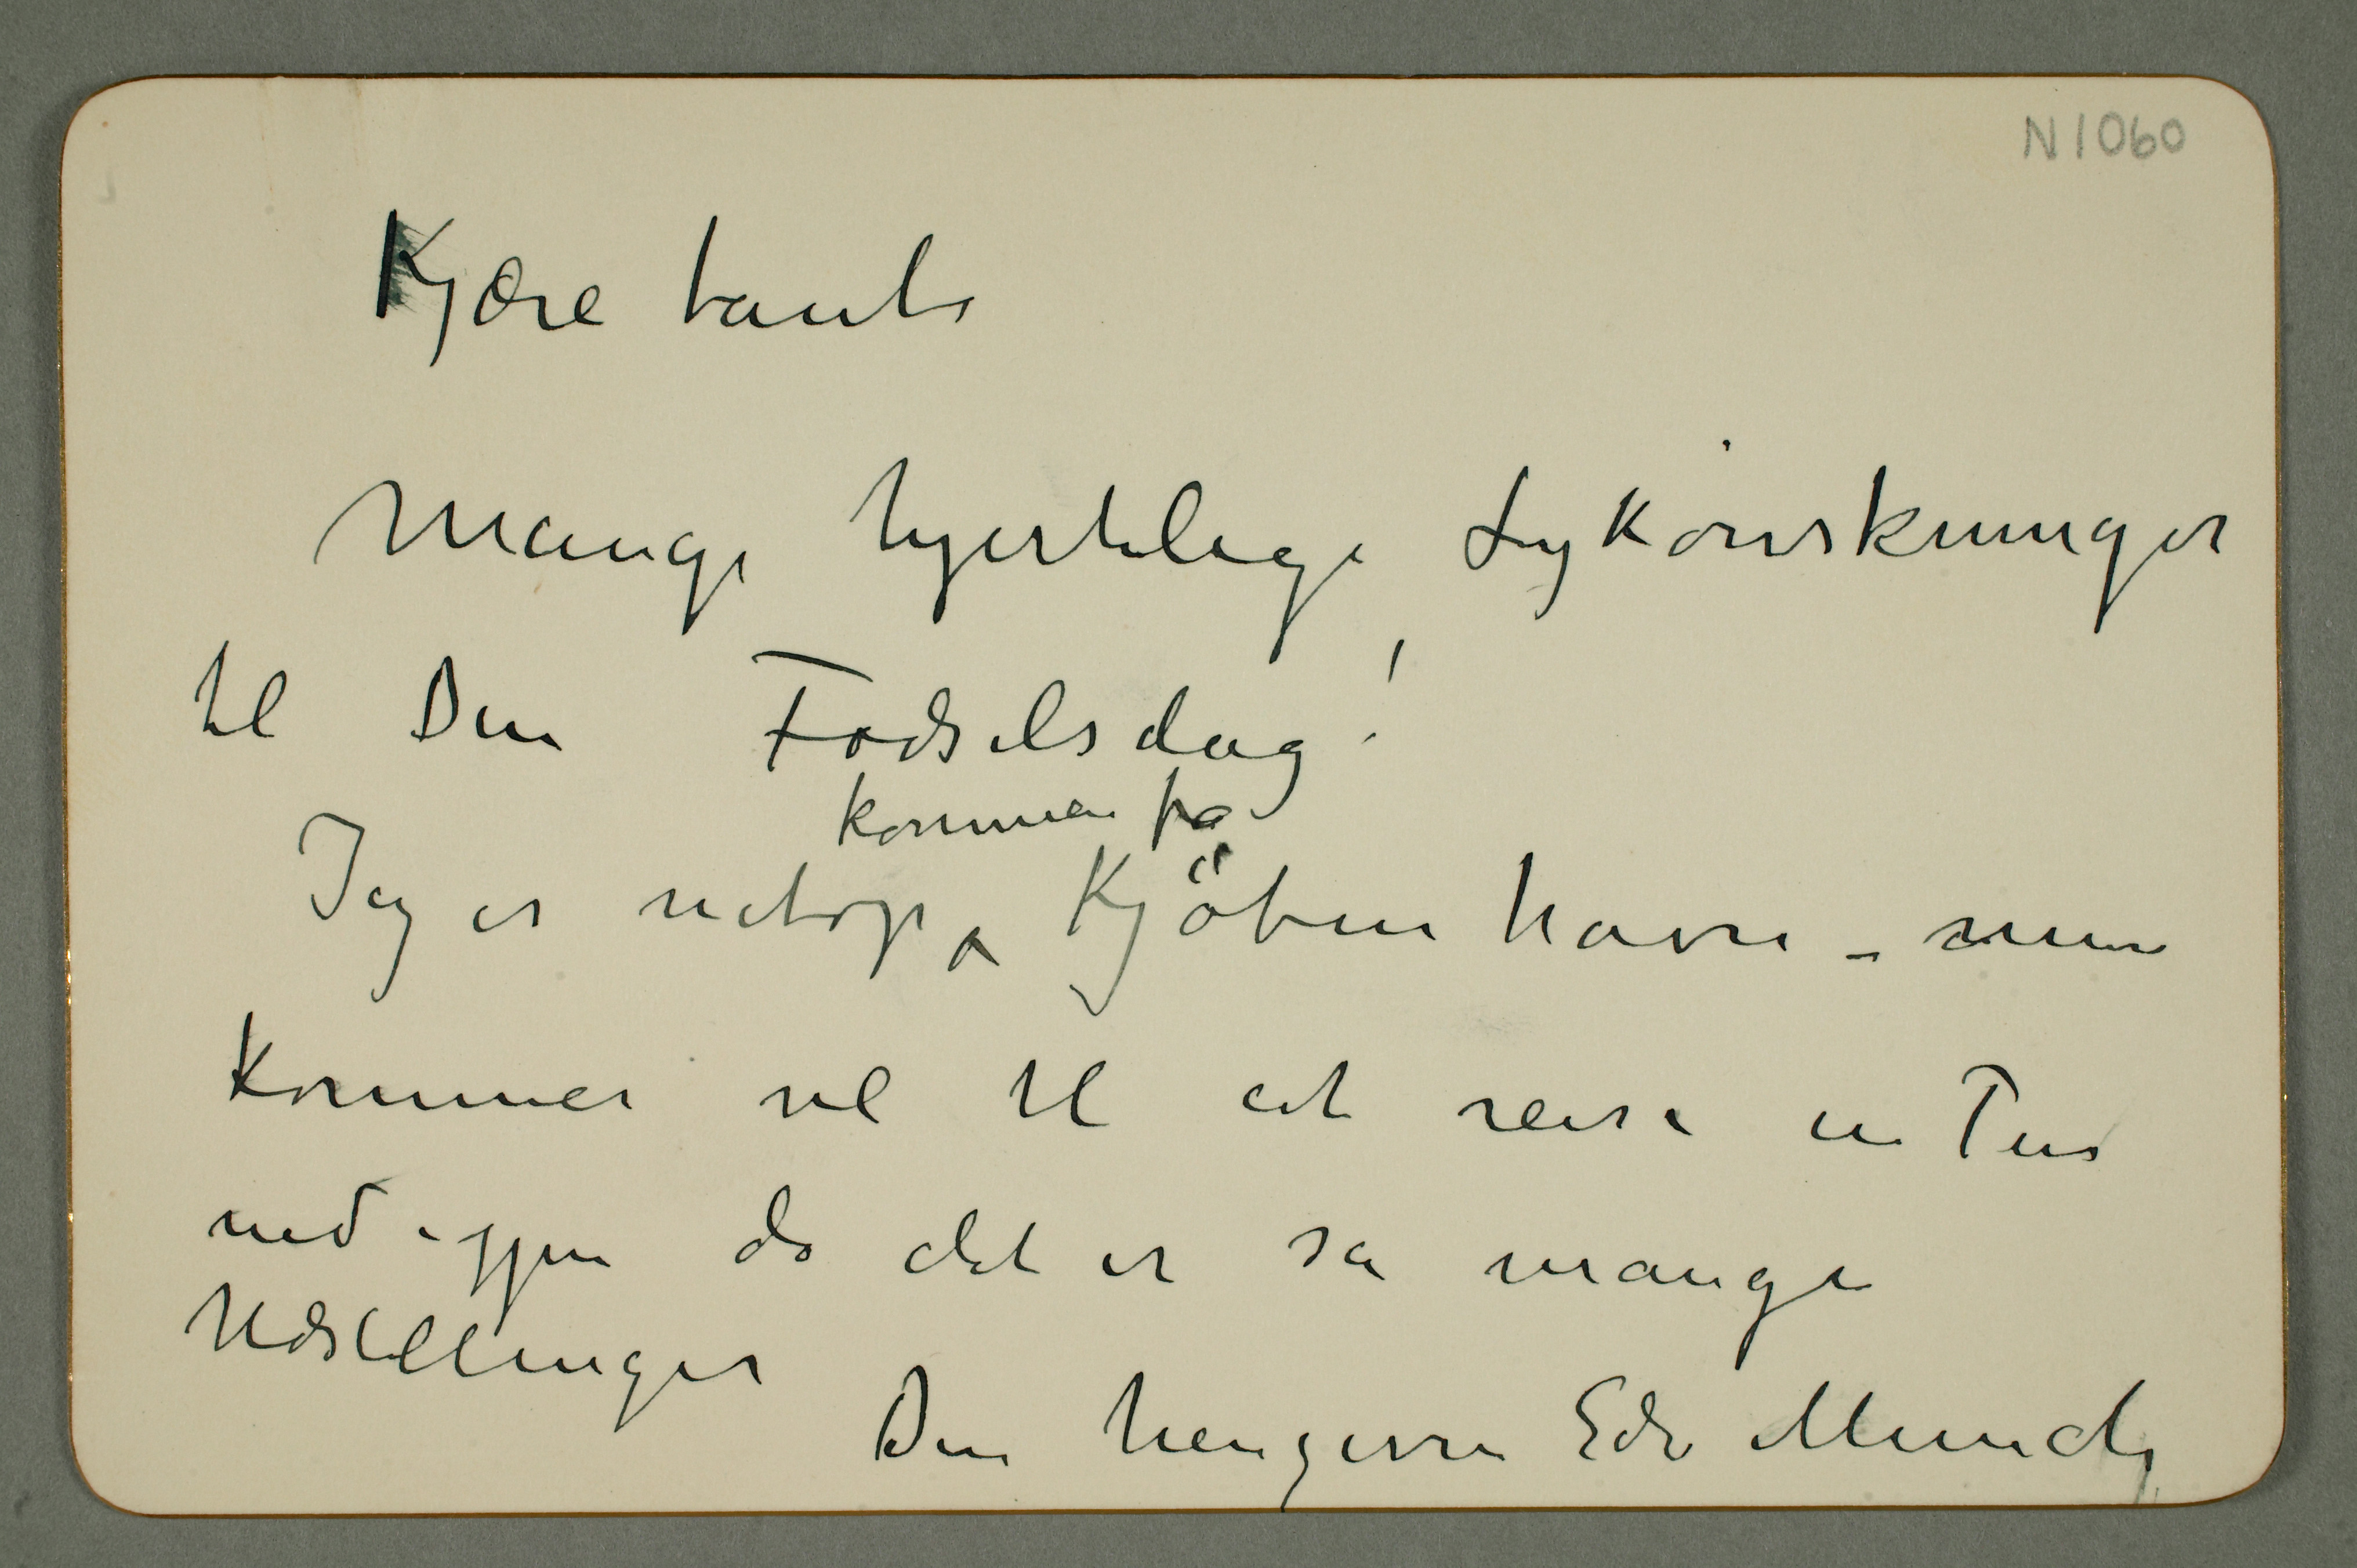 N 1060
Kjære tante
Mange hjertelige Lykønskninger
til Din Fødselsdag!
kommen fra
Jeg er netop Kjöbenhavn – men
kommer vel til at reise en Tur
ned igjen da det er så mange
Udstillinger
Din hengivne Edv Munch